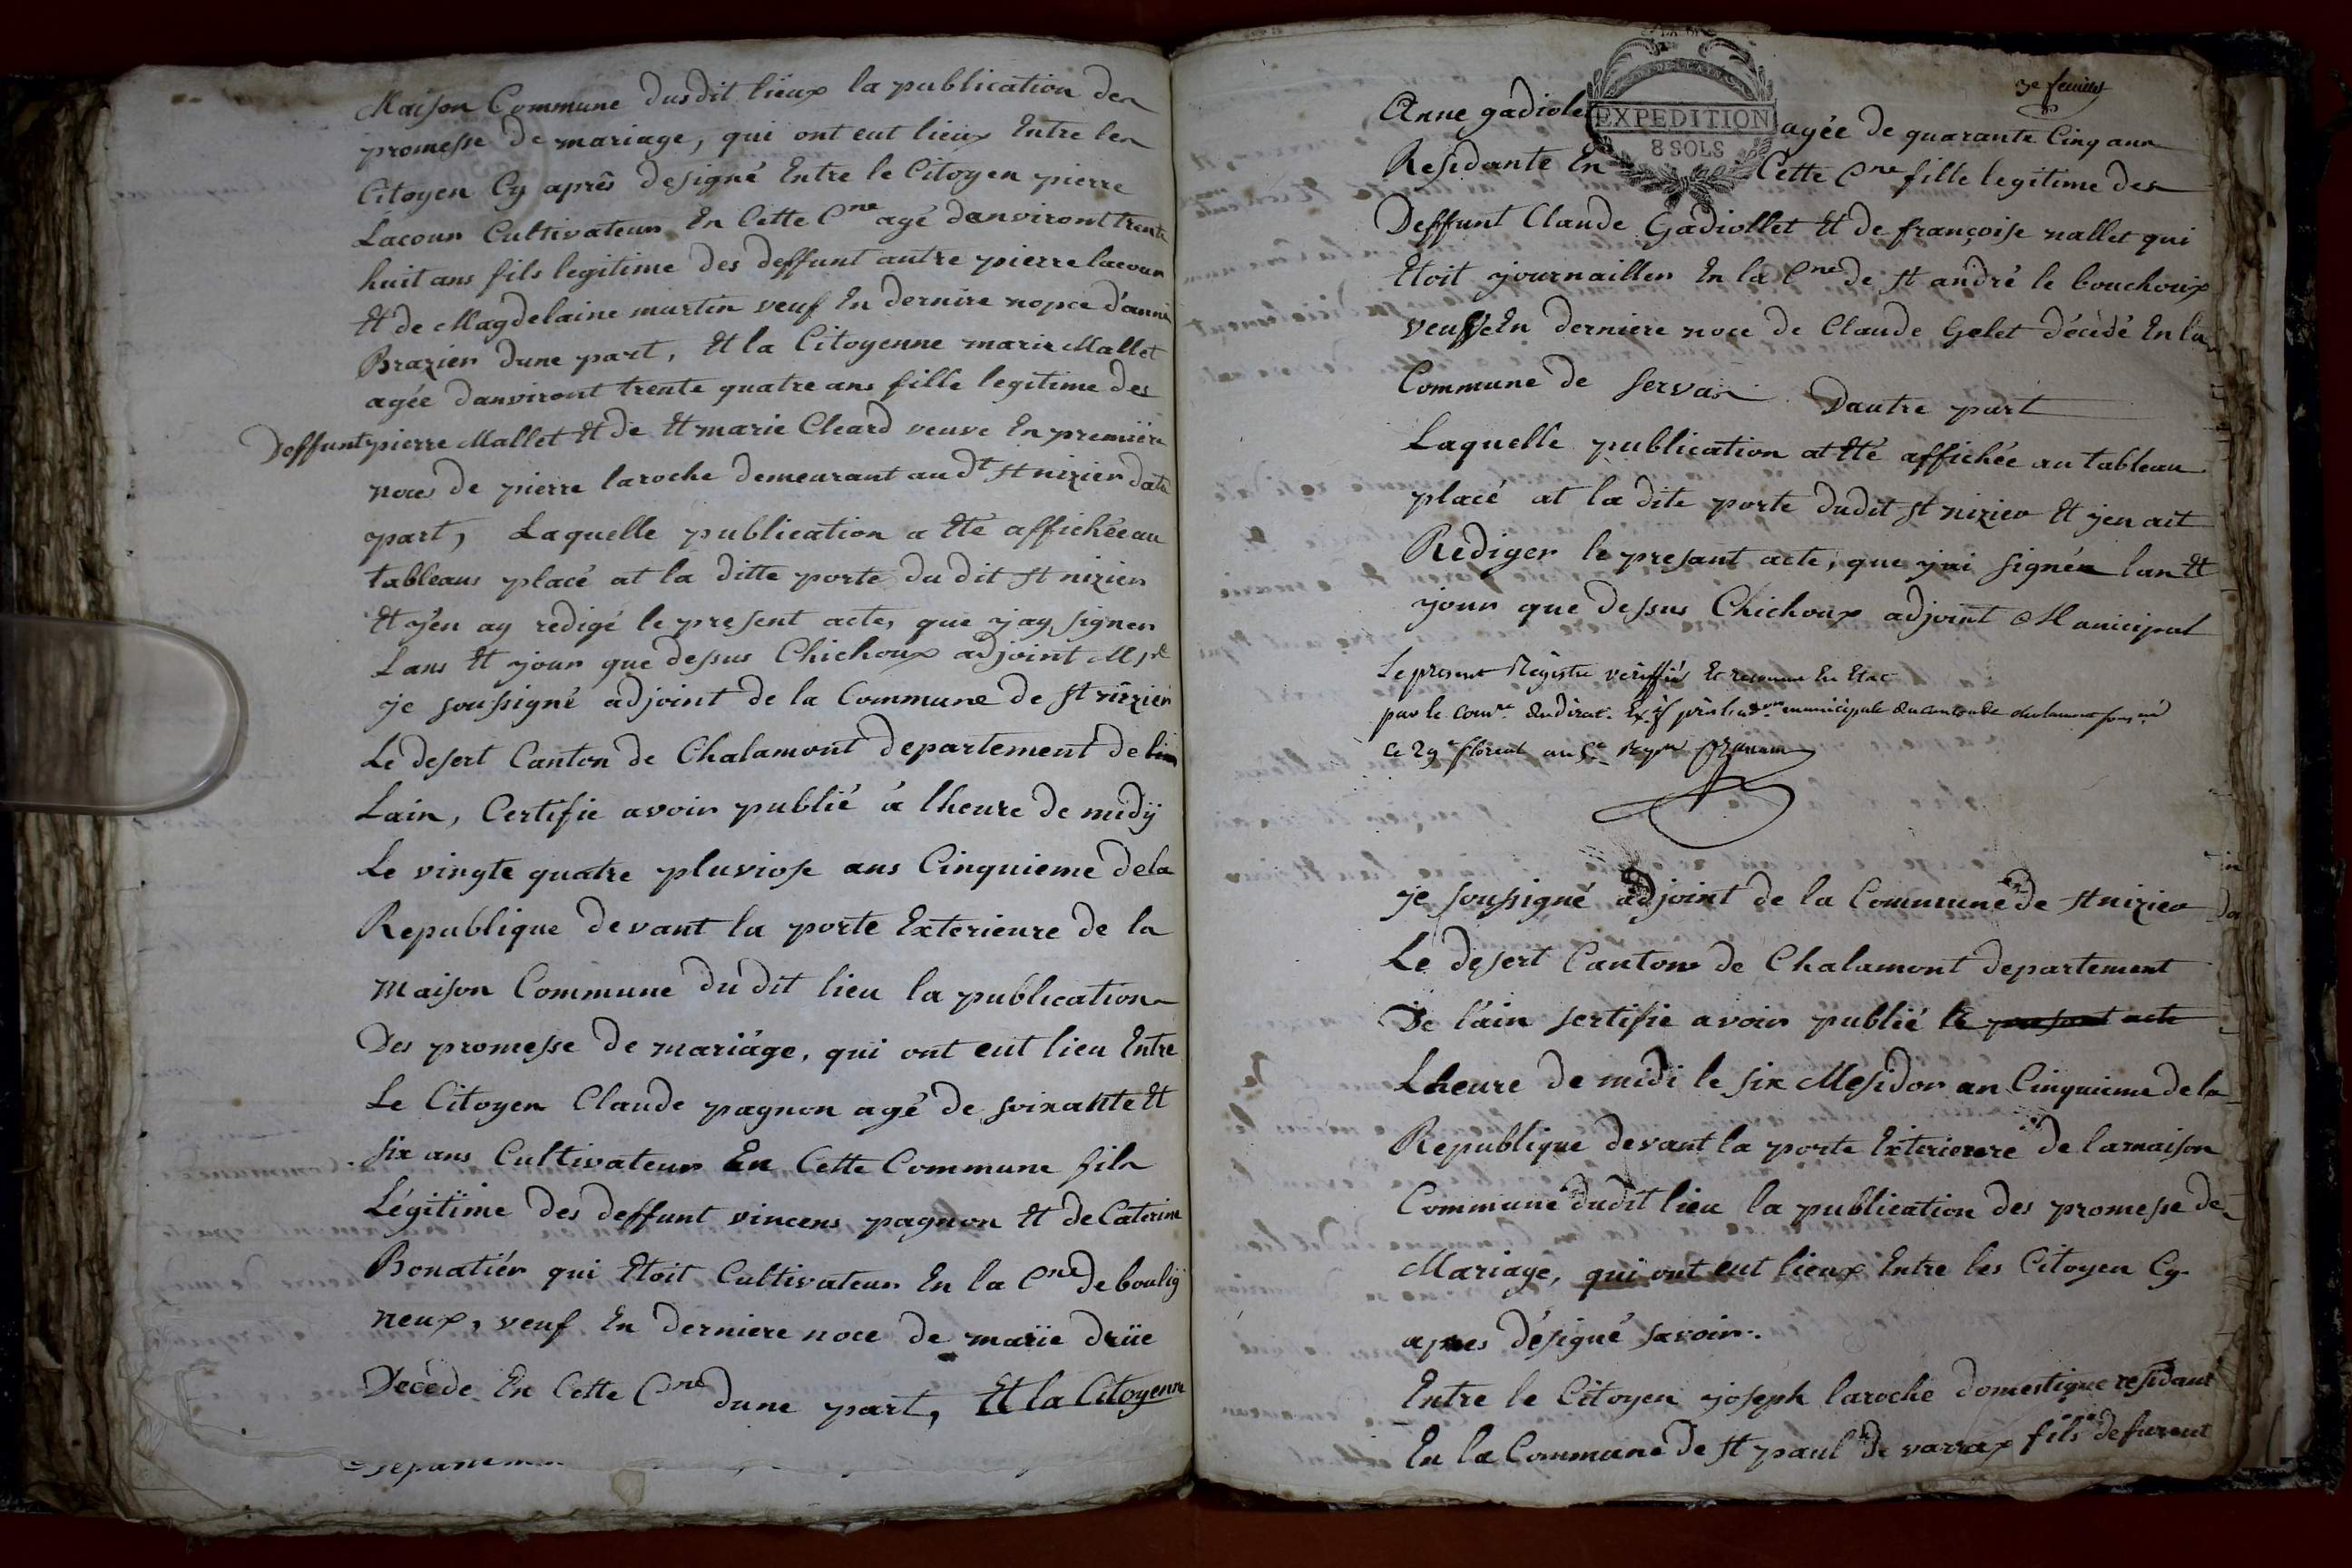 Maison Commune dusdit lieux la publication des
promesse de mariage, qui ont eut lieux Entre les
Citoyen Cy après designé Entre le Citoyen pierre
Lacour Cultivateur En Cette Cne agé danviront trente
huit ans fils legitime des deffunt autre pierre lacour
Et de Magdelaine martin veuf En dernire nopce d'anne
Brazier dune part, Et la Citoyenne marie Mallet
agée danviront trente quatre ans fille legitime des
Deffunt pierre Mallet Et de Et marie Cleard veuve En premiére
noces de pierre laroche demeurant au dt st nizier
part, Laquelle publication a Eté affichée au
tableaus placé at la ditte porte du dit st nizier
Et y'en ay redigé le present acte, que yay signer
Lans Et your que dessus Chichoux adjoint Mpl
je soussigné adjoint de la Commune de st nizier
Le desert Canton de Chalamont departement de
Lain, Certifie avoir publié à lheure de midÿ
Le vingte quatre pluviose ans Cinquieme de la
Republique devant la porte Exterieure de la
Maison Commune du dit lieu la publication
Des promesse de mariage, qui ont eut lieu Entre
Le Citoyen Claude pagnon agé de soixante Et
six ans Cultivateur En Cette Commune fils
Légitime des deffunt vincens pagnon Et de Caterine
Bonatiér qui Etoit Cultivateur En la Cne de boulig
neux, veuf En derniere noce de marïe drüe
Decéde En Cette Cne dune part, Et la Citoyenne
3e feuillet
Anne gadiolet agée de quarante Cinq ans
EXPEDITION
8 SOLS
Residante En Cette Cne fille legitime des
Deffunt Claude Gadiollet Et de françoise nallet qui
Etoit journaillier En la Cne de st andré le bouchoux
veuffe En derniere noce de Claude Gelet décédé En la
Commune de Servas Dautre part
Laquelle publication at Eté affichée au tableau
placé at la dite porte dudit st nizier Et jen ait
Rediger le presant acte, que jai signér lan Et
jour que dessus Chichoux adjoint Municipal
Le present Régistre vériffié Et reconnu En Etat
par le Comre du dirat. Ex.if près l'adon municipale du canton de chalamont
Ce 29 floreal an 5e
je soussigné adjoint de la Commune de st nizier
Le desert Canton de Chalamont departement
De l'ain sertifie avoir publié le presant acte
Lheure de midi le six Mesidor an Cinquieme de la
Republique devant la porte Exterierere de la maison
Commune dudit lieu la publication des promesse de
Mariage, qui ont eut lieux Entre les Citoyen Cy
apres désigné savoir.
Entre le Citoyen joseph laroche domestique residant
En la Commune de st paul de varrax fils